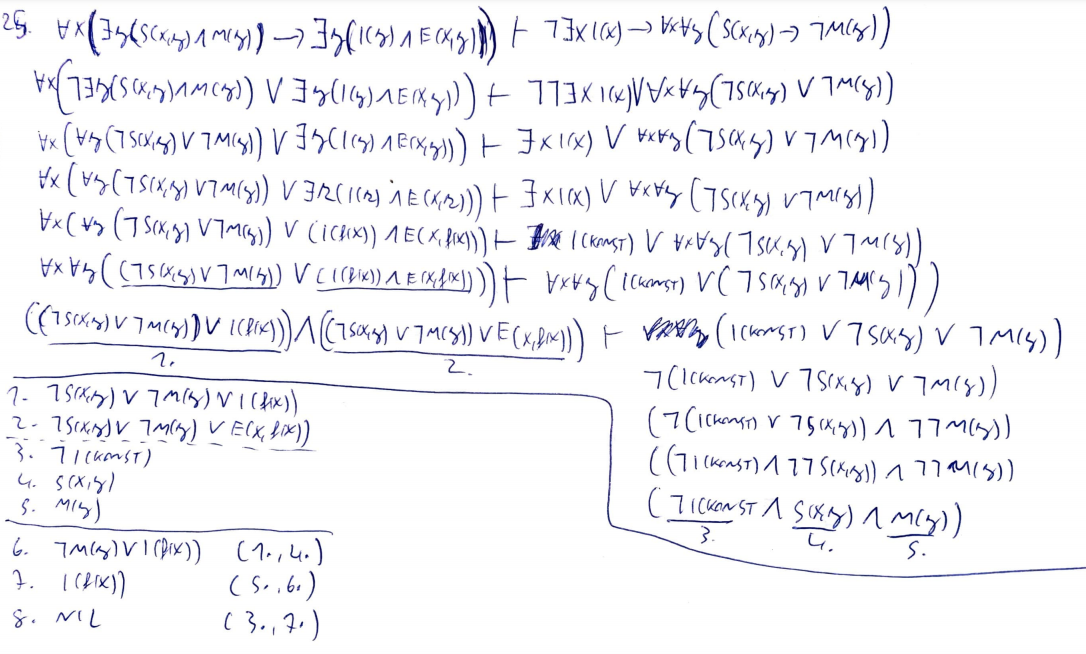 25. ∀x(∃y(S(x,y)∧M(y)) → ∃y(I(y)∧E(x,y))) ⊢ ¬∃x I(x) → ∀x∀y(S(x,y) → ¬M(y))
∀x(¬∃y(S(x,y)∧M(y)) ∨ ∃y(I(y)∧E(x,y))) ⊢ ¬¬∃x I(x) ∨ ∀x∀y(¬S(x,y) ∨ ¬M(y))
∀x(∀y(¬S(x,y) ∨ ¬M(y)) ∨ ∃y(I(y)∧E(x,y))) ⊢ ∃x I(x) ∨ ∀x∀y(¬S(x,y) ∨ ¬M(y))
∀x(∀y(¬S(x,y) ∨ ¬M(y)) ∨ ∃z(I(z)∧E(x,z))) ⊢ ∃x I(x) ∨ ∀x∀y(¬S(x,y) ∨ ¬M(y))
∀x(∀y(¬S(x,y) ∨ ¬M(y)) ∨ (I(f(x)) ∧ E(x,f(x))) ⊢ I(KONST) ∨ ∀x∀y(¬S(x,y) ∨ ¬M(y))
∀x∀y((¬S(x,y) ∨ ¬M(y)) ∨ (I(f(x)) ∧ E(x,f(x)))) ⊢ ∀x∀y(I(KONST) ∨ (¬S(x,y) ∨ ¬M(y)))
((¬S(x,y) ∨ ¬M(y)) ∨ I(f(x))) ∧ ((¬S(x,y) ∨ ¬M(y)) ∨ E(x,f(x))) ⊢ (I(KONST) ∨ ¬S(x,y) ∨ ¬M(y))
1. 2.
¬(I(KONST) ∨ ¬S(x,y) ∨ ¬M(y))
(¬(I(KONST) ∨ ¬S(x,y)) ∧ ¬¬M(y))
((¬I(KONST) ∧ ¬¬S(x,y)) ∧ ¬¬M(y))
(¬I(KONST ∧ S(x,y) ∧ M(y))
3. 4. 5.
1. ¬S(x,y) ∨ ¬M(y) ∨ I(f(x))
2. ¬S(x,y) ∨ ¬M(y) ∨ E(x,f(x))
3. ¬I(KONST)
4. S(x,y)
5. M(y)
6. ¬M(y) ∨ I(f(x)) (1., 4.)
7. I(f(x)) (5., 6.)
8. NIL (3., 7.)